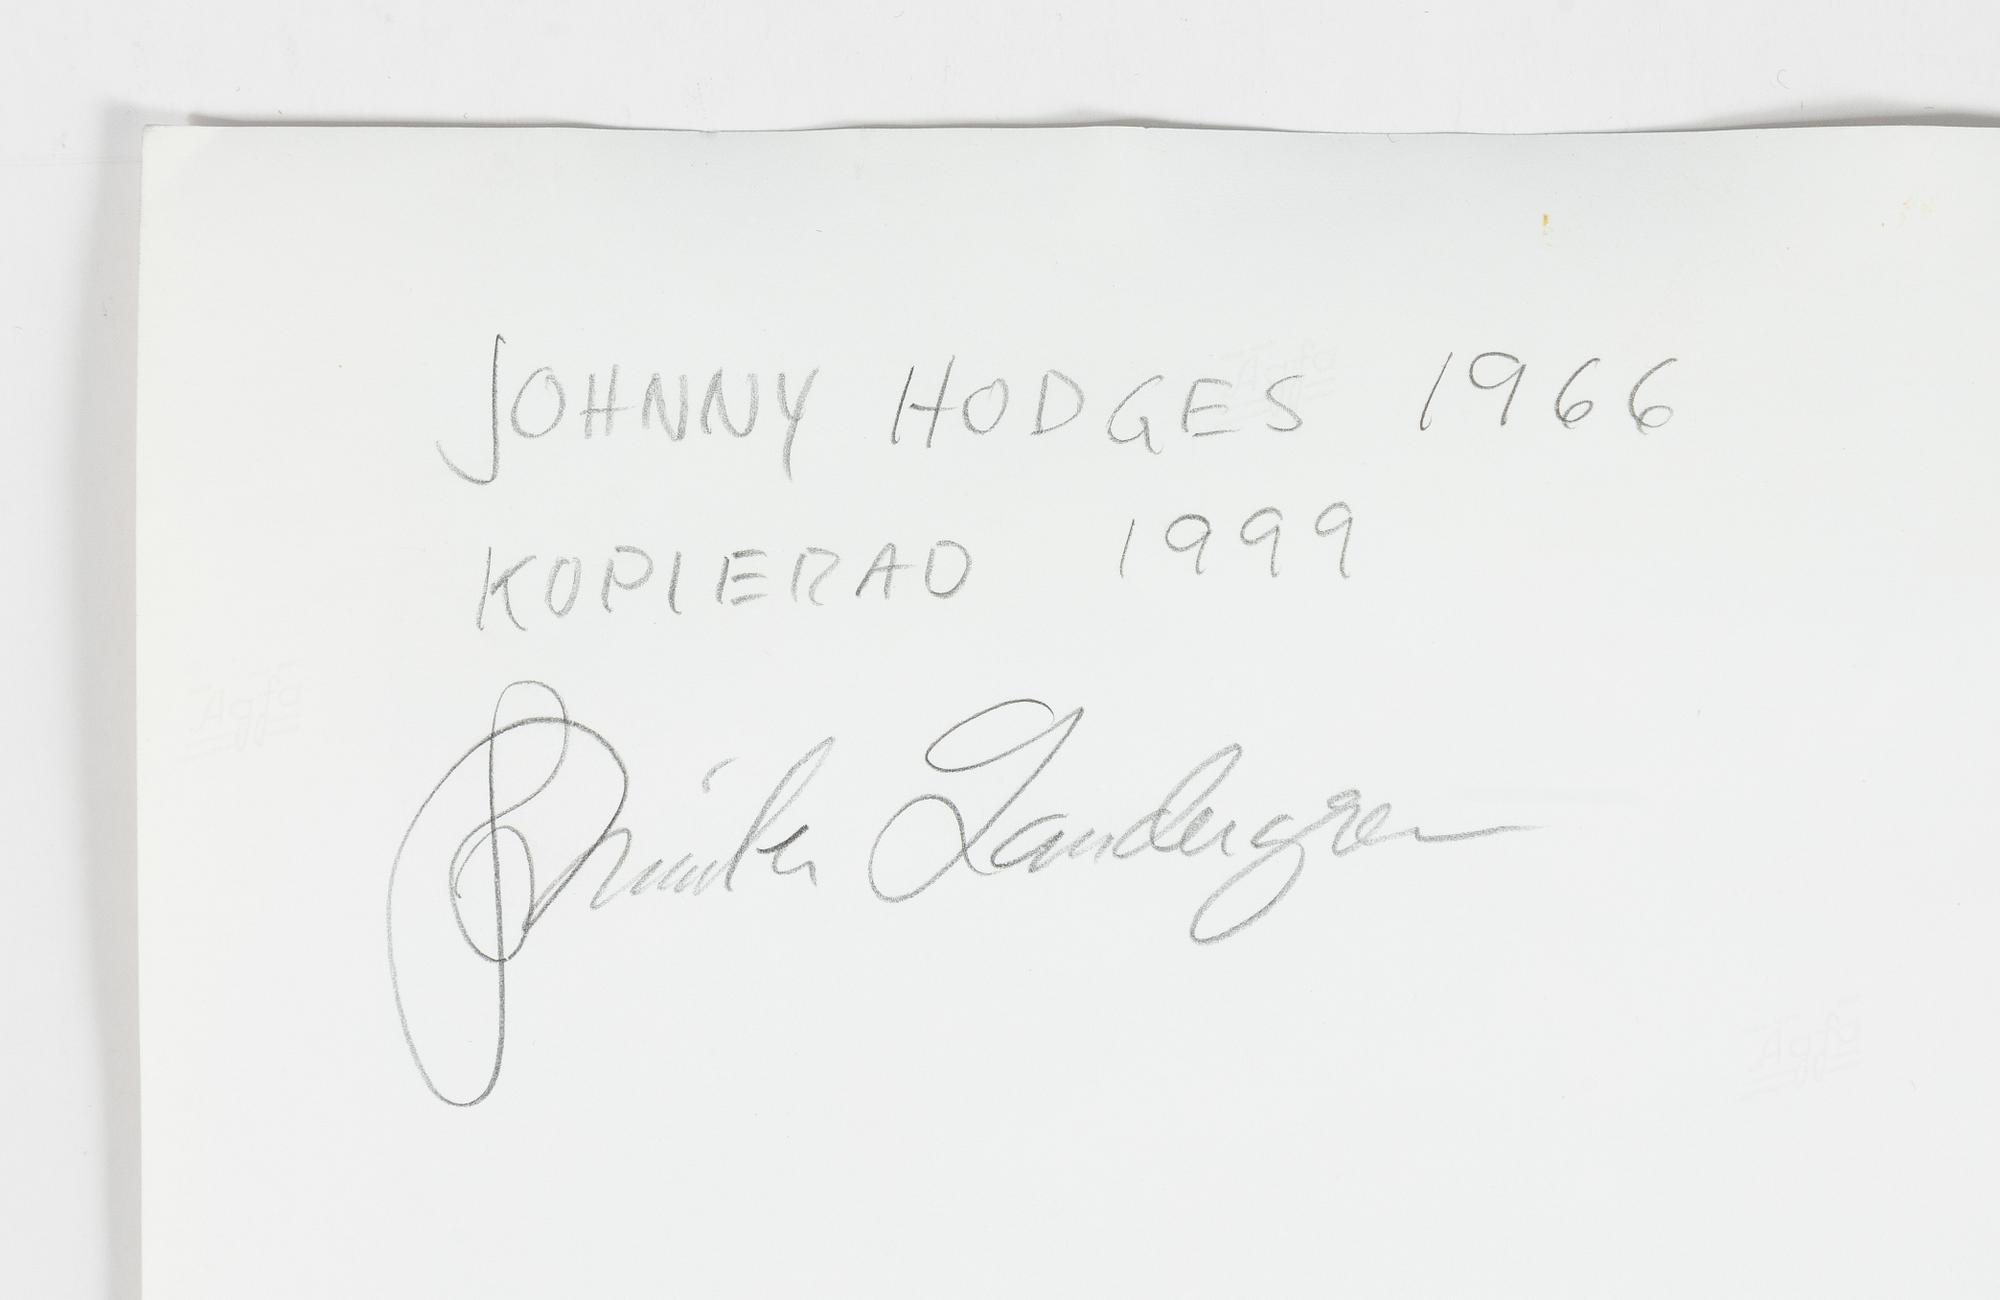 JOHNNY HODGES 1966
KOPIERAD 1999
Gunilla Landergren
Agfa
Agfa
Agfa